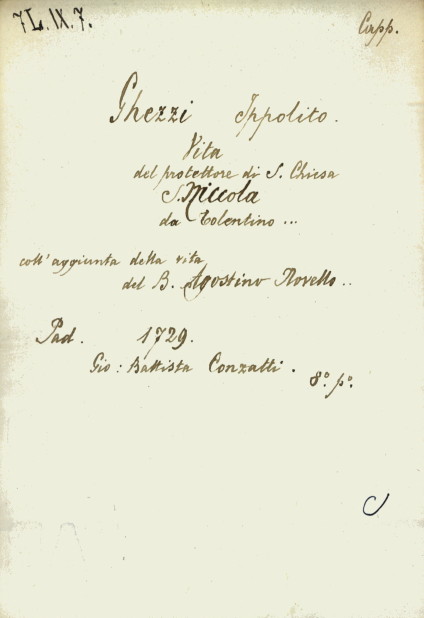 7L.IX.7.
Capp.
Ghezzi Ippolito.
Vita
del protettore di S. Chiesa
S. Niccola
da Tolentino ...
coll' aggiunta della vita
del B. Agostino Novello..
Pad. 1729.
Gio: Battista Conzatti.
8.° p.°